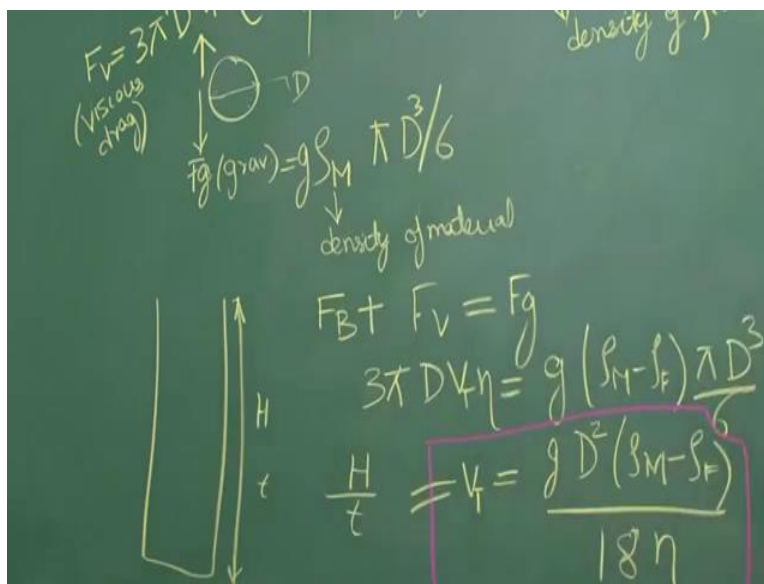 F_V = 3πD
(viscous drag)
density of
D
Fg (grav) = gρ_M πD³/6
density of material
F_B + F_V = Fg
3πDV_Tη = g(ρ_M-ρ_F) πD³/6
H
t
H/t = V_T = gD²(ρ_M-ρ_F)/18η